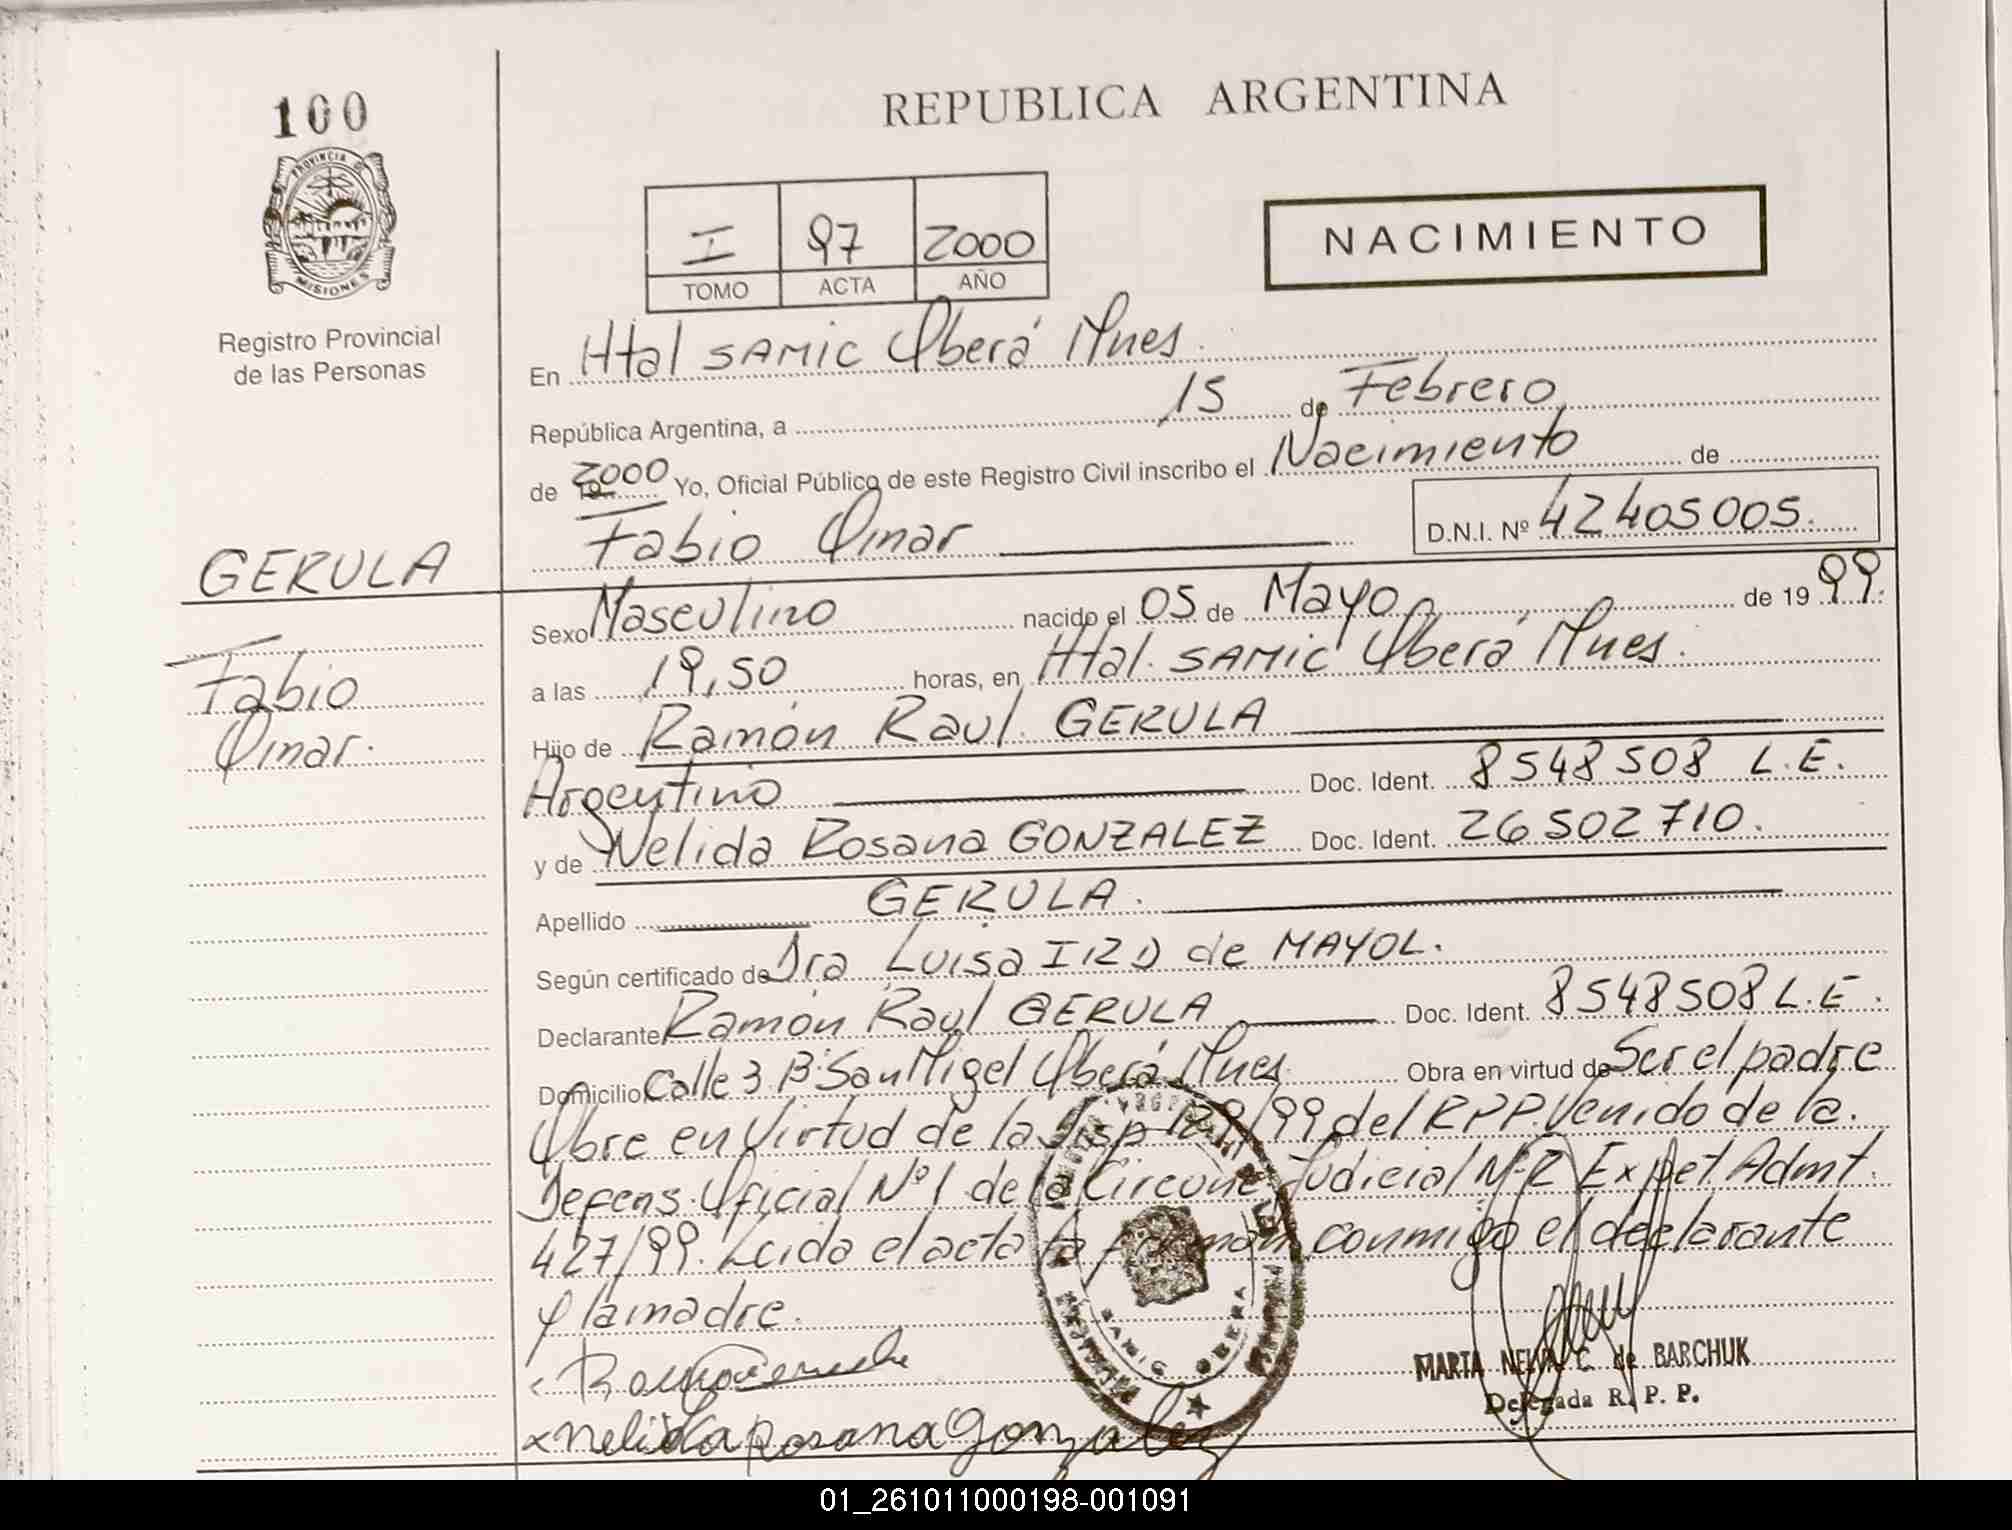 100
PROVINCIA DE
MISIONES
Registro Provincial
de las Personas
GERULA
Fabio
Omar.
REPUBLICA ARGENTINA
I 97 2000
TOMO ACTA AÑO
NACIMIENTO
En Htal SAMIC Oberá Mnes.
República Argentina, a 15 de Febrero
de 2000 Yo, Oficial Público de este Registro Civil inscribo el Nacimiento de
Fabio Omar D.N.I. Nº 42405005.
Sexo Masculino nacido el 05 de Mayo de 1999.
a las 19,50 horas, en Htal. SAMIC Oberá Mnes.
Hijo de Ramón Raul GERULA
Argentino Doc. Ident. 8548508 L.E.
y de Nelida Rosana GONZALEZ Doc. Ident. 26502710.
Apellido GERULA.
Según certificado de Dra Luisa de MAYOL.
Declarante Ramón Raul GERULA Doc. Ident. 8548508 L.E.
Domicilio Calle 3 Bº San Migel Oberá Mnes Obra en virtud de Ser el padre
Obre en Virtud de la Disp /99 del R.P.P. Venido de la
Defens. Oficial Nº 1 de la Circunc. Judicial Nº 2 Expet. Admt.
427/99. Leida el acta la firman conmigo el declarante
y la madre.
Nelida Rosana Gonzalez
SAMIC OBERA
MARTA NELVA C. de BARCHUK
Delegada R. P. P.
01_261011000198-001091